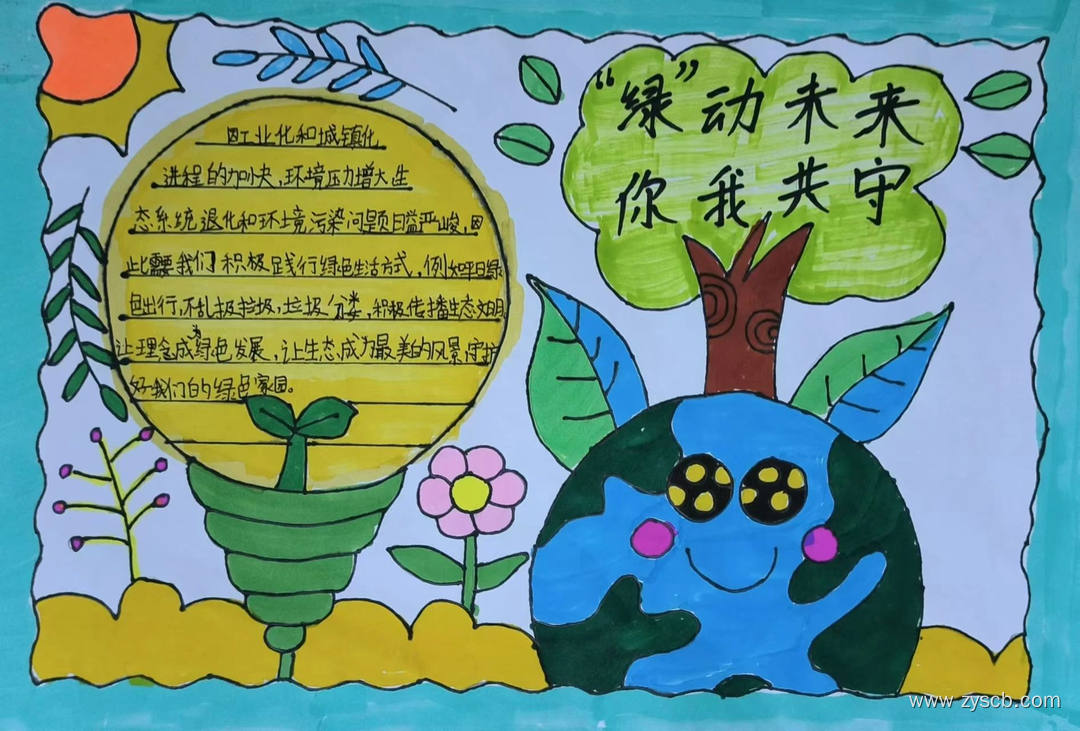 “绿”动未来
你我共守
因工业化和城镇化
进程的加快,环境压力增大生
态系统退化和环境污染问题日益严峻,因
此需要我们积极践行绿色生活方式,例如平日绿
色出行,不乱扔垃圾,垃圾分类,积极传播生态文明
让理念成为绿色发展,让生态成为最美的风景,守护
好我们的绿色家园。
www.zyscb.com